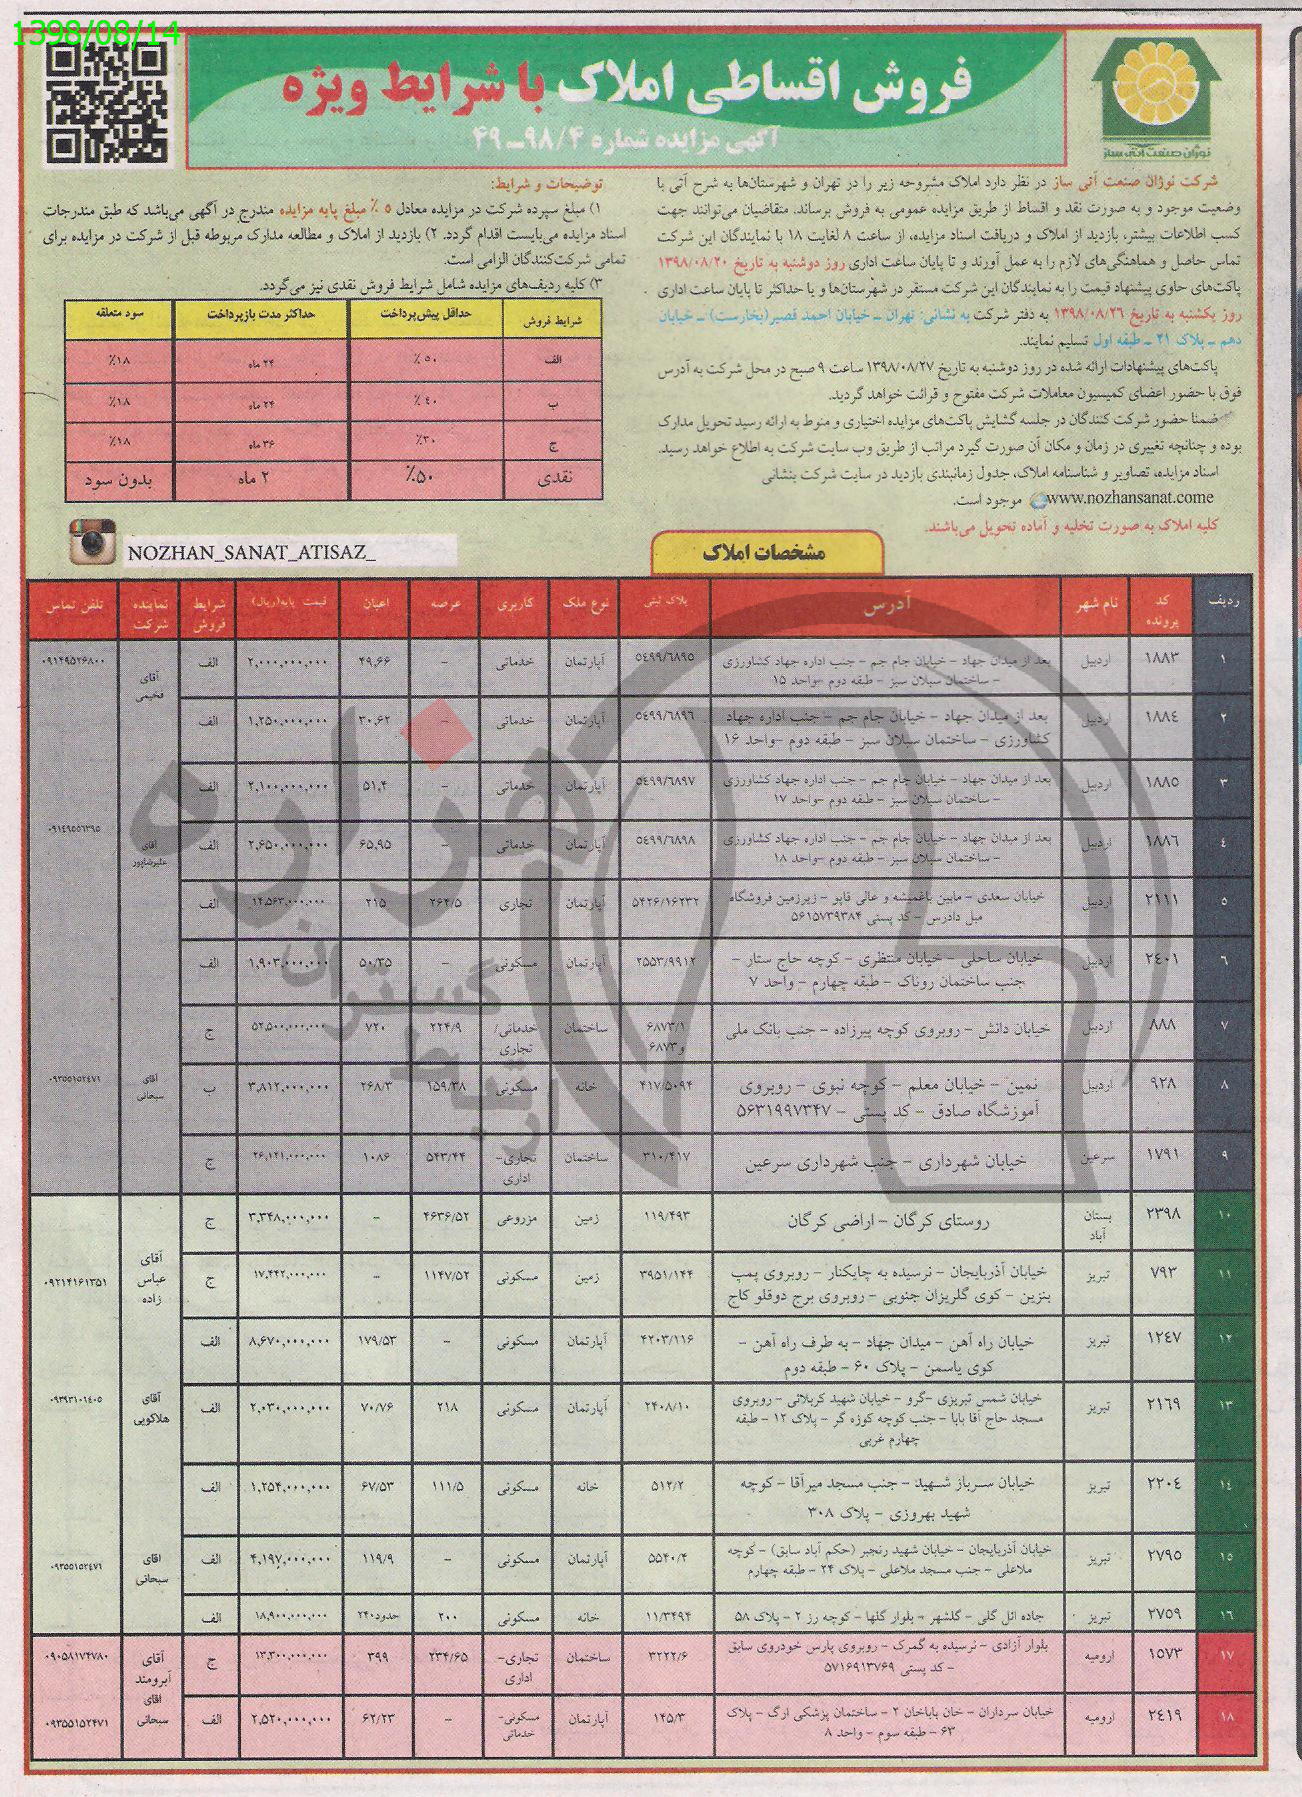 1398/08/14
فروش اقساطی املاک با شرایط ویژه
آگهی مزایده شماره ۹۸/۴-۴۹
نوژان صنعت آتی ساز
شرکت نوژان صنعت آتی ساز در نظر دارد املاک مشروحه زیر را در تهران و شهرستان‌ها به شرح آتی با
وضعیت موجود و به صورت نقد و اقساط از طریق مزایده عمومی به فروش برساند. متقاضیان می‌توانند جهت
کسب اطلاعات بیشتر، بازدید از املاک و دریافت اسناد مزایده، از ساعت ۸ لغایت ۱۸ با نمایندگان این شرکت
تماس حاصل و هماهنگی‌های لازم را به عمل آورند و تا پایان ساعت اداری روز دوشنبه به تاریخ ۱۳۹۸/۰۸/۲۰
پاکت‌های حاوی پیشنهاد قیمت را به نمایندگان این شرکت مستقر در شهرستان‌ها و یا حداکثر تا پایان ساعت اداری
روز یکشنبه به تاریخ ۱۳۹۸/۰۸/۲۶ به دفتر شرکت به نشانی: تهران – خیابان احمد قصیر(بخارست) – خیابان
دهم – پلاک ۲۱ – طبقه اول تسلیم نمایند.
پاکت‌های پیشنهادات ارائه شده در روز دوشنبه به تاریخ ۱۳۹۸/۰۸/۲۷ ساعت ۹ صبح در محل شرکت به آدرس
فوق با حضور اعضای کمیسیون معاملات شرکت مفتوح و قرائت خواهد گردید.
ضمنا حضور شرکت کنندگان در جلسه گشایش پاکت‌های مزایده اختیاری و منوط به ارائه رسید تحویل مدارک
بوده و چنانچه تغییری در زمان و مکان آن صورت گیرد مراتب از طریق وب سایت شرکت به اطلاع خواهد رسید.
اسناد مزایده، تصاویر و شناسنامه املاک، جدول زمانبندی بازدید در سایت شرکت بنشانی
www.nozhansanat.come موجود است.
کلیه املاک به صورت تخلیه و آماده تحویل می‌باشند.
توضیحات و شرایط:
۱) مبلغ سپرده شرکت در مزایده معادل ۵ ٪ مبلغ پایه مزایده مندرج در آگهی می‌باشد که طبق مندرجات
اسناد مزایده می‌بایست اقدام گردد. ۲) بازدید از املاک و مطالعه مدارک مربوطه قبل از شرکت در مزایده برای
تمامی شرکت‌کنندگان الزامی است.
۳) کلیه ردیف‌های مزایده شامل شرایط فروش نقدی نیز می‌گردد.
شرایط فروش حداقل پیش‌پرداخت حداکثر مدت بازپرداخت سود متعلقه
الف ۵۰ ٪ ۲۴ ماه ۱۸٪
ب ۴۰ ٪ ۲۴ ماه ۱۸٪
ج ۳۰٪ ۳۶ ماه ۱۸٪
نقدی ۵۰٪ ۲ ماه بدون سود
NOZHAN_SANAT_ATISAZ_
مشخصات املاک
ردیف کد پرونده نام شهر آدرس پلاک ثبتی نوع ملک کاربری عرصه اعیان قیمت پایه(ریال) شرایط فروش نماینده شرکت تلفن تماس
۱ ۱۸۸۳ اردبیل بعد از میدان جهاد – خیابان جام جم – جنب اداره جهاد کشاورزی – ساختمان سبلان سبز – طبقه دوم –واحد ۱۵ ۵٤۹۹/٦۸۹۵ آپارتمان خدماتی – ۴۹,۶۶ ۲,۰۰۰,۰۰۰,۰۰۰ الف آقای فخیمی
۲ ۱۸۸٤ اردبیل بعد از میدان جهاد – خیابان جام جم – جنب اداره جهاد کشاورزی – ساختمان سبلان سبز – طبقه دوم –واحد ۱۶ ۵٤۹۹/٦۸۹٦ آپارتمان خدماتی – ۳۰,۶۲ ۱,۲۵۰,۰۰۰,۰۰۰ الف
۳ ۱۸۸۵ اردبیل بعد از میدان جهاد – خیابان جام جم – جنب اداره جهاد کشاورزی – ساختمان سبلان سبز – طبقه دوم –واحد ۱۷ ۵٤۹۹/٦۸۹۷ آپارتمان خدماتی – ۵۱,۴ ۲,۱۰۰,۰۰۰,۰۰۰ الف
٤ ۱۸۸٦ اردبیل بعد از میدان جهاد – خیابان جام جم – جنب اداره جهاد کشاورزی – ساختمان سبلان سبز – طبقه دوم –واحد ۱۸ ۵٤۹۹/٦۸۹۸ آپارتمان خدماتی – ۶۵,۹۵ ۲,۶۵۰,۰۰۰,۰۰۰ الف آقای علیرضاپور
۵ ۲۱۱۱ اردبیل خیابان سعدی – مابین باغمیشه و عالی قاپو – زیرزمین فروشگاه مبل دادرس – کد پستی ۵۶۱۵۷۳۹۳۸۴ ۵۴۲۶/۱۶۲۳۲ آپارتمان تجاری ۲۶۴/۵ ۲۱۵ ۱۴,۵۶۳,۰۰۰,۰۰۰ الف
٦ ۲٤۰۱ اردبیل خیابان ساحلی – خیابان منتظری – کوچه حاج ستار – جنب ساختمان روناک – طبقه چهارم – واحد ۷ ۲۵۵۳/۹۹۱۲ آپارتمان مسکونی – ۵۰/۳۵ ۱,۹۰۳,۰۰۰,۰۰۰ الف
۷ ۸۸۸ اردبیل خیابان دانش – روبروی کوچه پیرزاده – جنب بانک ملی ۶۸۷۳/۱ و۶۸۷۳ ساختمان خدماتی/ تجاری ۲۲۴/۹ ۷۲۰ ۵۲,۵۰۰,۰۰۰,۰۰۰ ج
۸ ۹۲۸ اردبیل نمین – خیابان معلم – کوچه نبوی – روبروی آموزشگاه صادق – کد پستی – ۵۶۳۱۹۹۷۳۴۷ ۴۱۷/۵۰۹۴ خانه مسکونی ۱۵۹/۳۸ ۲۶۸/۳ ۳,۸۱۲,۰۰۰,۰۰۰ ب آقای سبحانی ۰۹۳۵۵۱۵۲٤۷۱
۹ ۱۷۹۱ سرعین خیابان شهرداری – جنب شهرداری سرعین ۳۱۰/۴۱۷ ساختمان تجاری– اداری ۵۴۳/۴۴ ۱۰۸۶ ۲۶,۱۲۱,۰۰۰,۰۰۰ ج
۱۰ ۲۳۹۸ بستان آباد روستای کرگان – اراضی کرگان ۱۱۹/۴۹۳ زمین مزروعی ۴۶۳۶/۵۲ – ۳,۳۴۸,۰۰۰,۰۰۰ ج
۱۱ ۷۹۳ تبریز خیابان آذربایجان – نرسیده به چایکنار – روبروی پمپ بنزین – کوی گلریزان جنوبی – روبروی برج دوقلو کاج ۳۹۵۱/۱۴۴ زمین مسکونی ۱۱۴۷/۵۲ – ۱۷,۴۴۲,۰۰۰,۰۰۰ ج آقای عباس زاده ۰۹۲۱۴۱۶۱۳۵۱
۱۲ ۱۲٤۷ تبریز خیابان راه آهن – میدان جهاد – به طرف راه آهن – کوی یاسمن – پلاک ۶۰ – طبقه دوم ۴۲۰۳/۱۱۶ آپارتمان مسکونی – ۱۷۹/۵۳ ۸,۶۷۰,۰۰۰,۰۰۰ الف
۱۳ ۲۱٦۹ تبریز خیابان شمس تبریزی –گرو – خیابان شهید کربلائی – روبروی مسجد حاج آقا بابا – جنب کوچه کوزه گر – پلاک ۱۲ – طبقه چهارم غربی ۲۴۰۸/۱۰ آپارتمان مسکونی ۲۱۸ ۷۰/۷۶ ۲,۰۳۰,۰۰۰,۰۰۰ الف آقای هلاکویی ۰۹۳۹۳۱۰۱٤۰۵
۱٤ ۲۲۰٤ تبریز خیابان سرباز شهید – جنب مسجد میرآقا – کوچه شهید بهروزی – پلاک ۳۰۸ ۵۱۲/۲ خانه مسکونی ۱۱۱/۵ ۶۷/۵۳ ۱,۲۵۴,۰۰۰,۰۰۰ الف
۱۵ ۲۷۹۵ تبریز خیابان آذربایجان – خیابان شهید رنجبر (حکم آباد سابق) – کوچه ملاعلی – جنب مسجد ملاعلی – پلاک ۲۴ – طبقه چهارم ۵۵۴۰/۴ آپارتمان مسکونی – ۱۱۹/۹ ۴,۱۹۷,۰۰۰,۰۰۰ الف اقای سبحانی
۱٦ ۲۷۵۹ تبریز جاده ائل گلی – گلشهر – بلوار گلها – کوچه رز ۲ – پلاک ۵۸ ۱۱/۳۴۹۴ خانه مسکونی ۲۰۰ حدود۲۴۰ ۱۸,۹۰۰,۰۰۰,۰۰۰ الف
۱۷ ۱۵۷۳ ارومیه بلوار آزادی – نرسیده به گمرک – روبروی پارس خودروی سابق – کد پستی ۵۷۱۶۹۱۳۷۶۹ ۳۲۲۲/۶ ساختمان تجاری– اداری ۲۳۴/۶۵ ۳۹۹ ۱۳,۳۰۰,۰۰۰,۰۰۰ ج آقای آبرومند ۰۹۰۵۸۱۷۴۷۸۰
۱۸ ۲٤۱۹ ارومیه خیابان سرداران – خان باباخان ۲ – ساختمان پزشکی ارگ – پلاک ۶۳ – طبقه سوم – واحد ۸ ۱۴۵/۳ آپارتمان مسکونی– خدماتی – ۶۲/۲۳ ۲,۵۲۰,۰۰۰,۰۰۰ الف اقای سبحانی ۰۹۳۵۵۱۵۲۴۷۱
هزاره